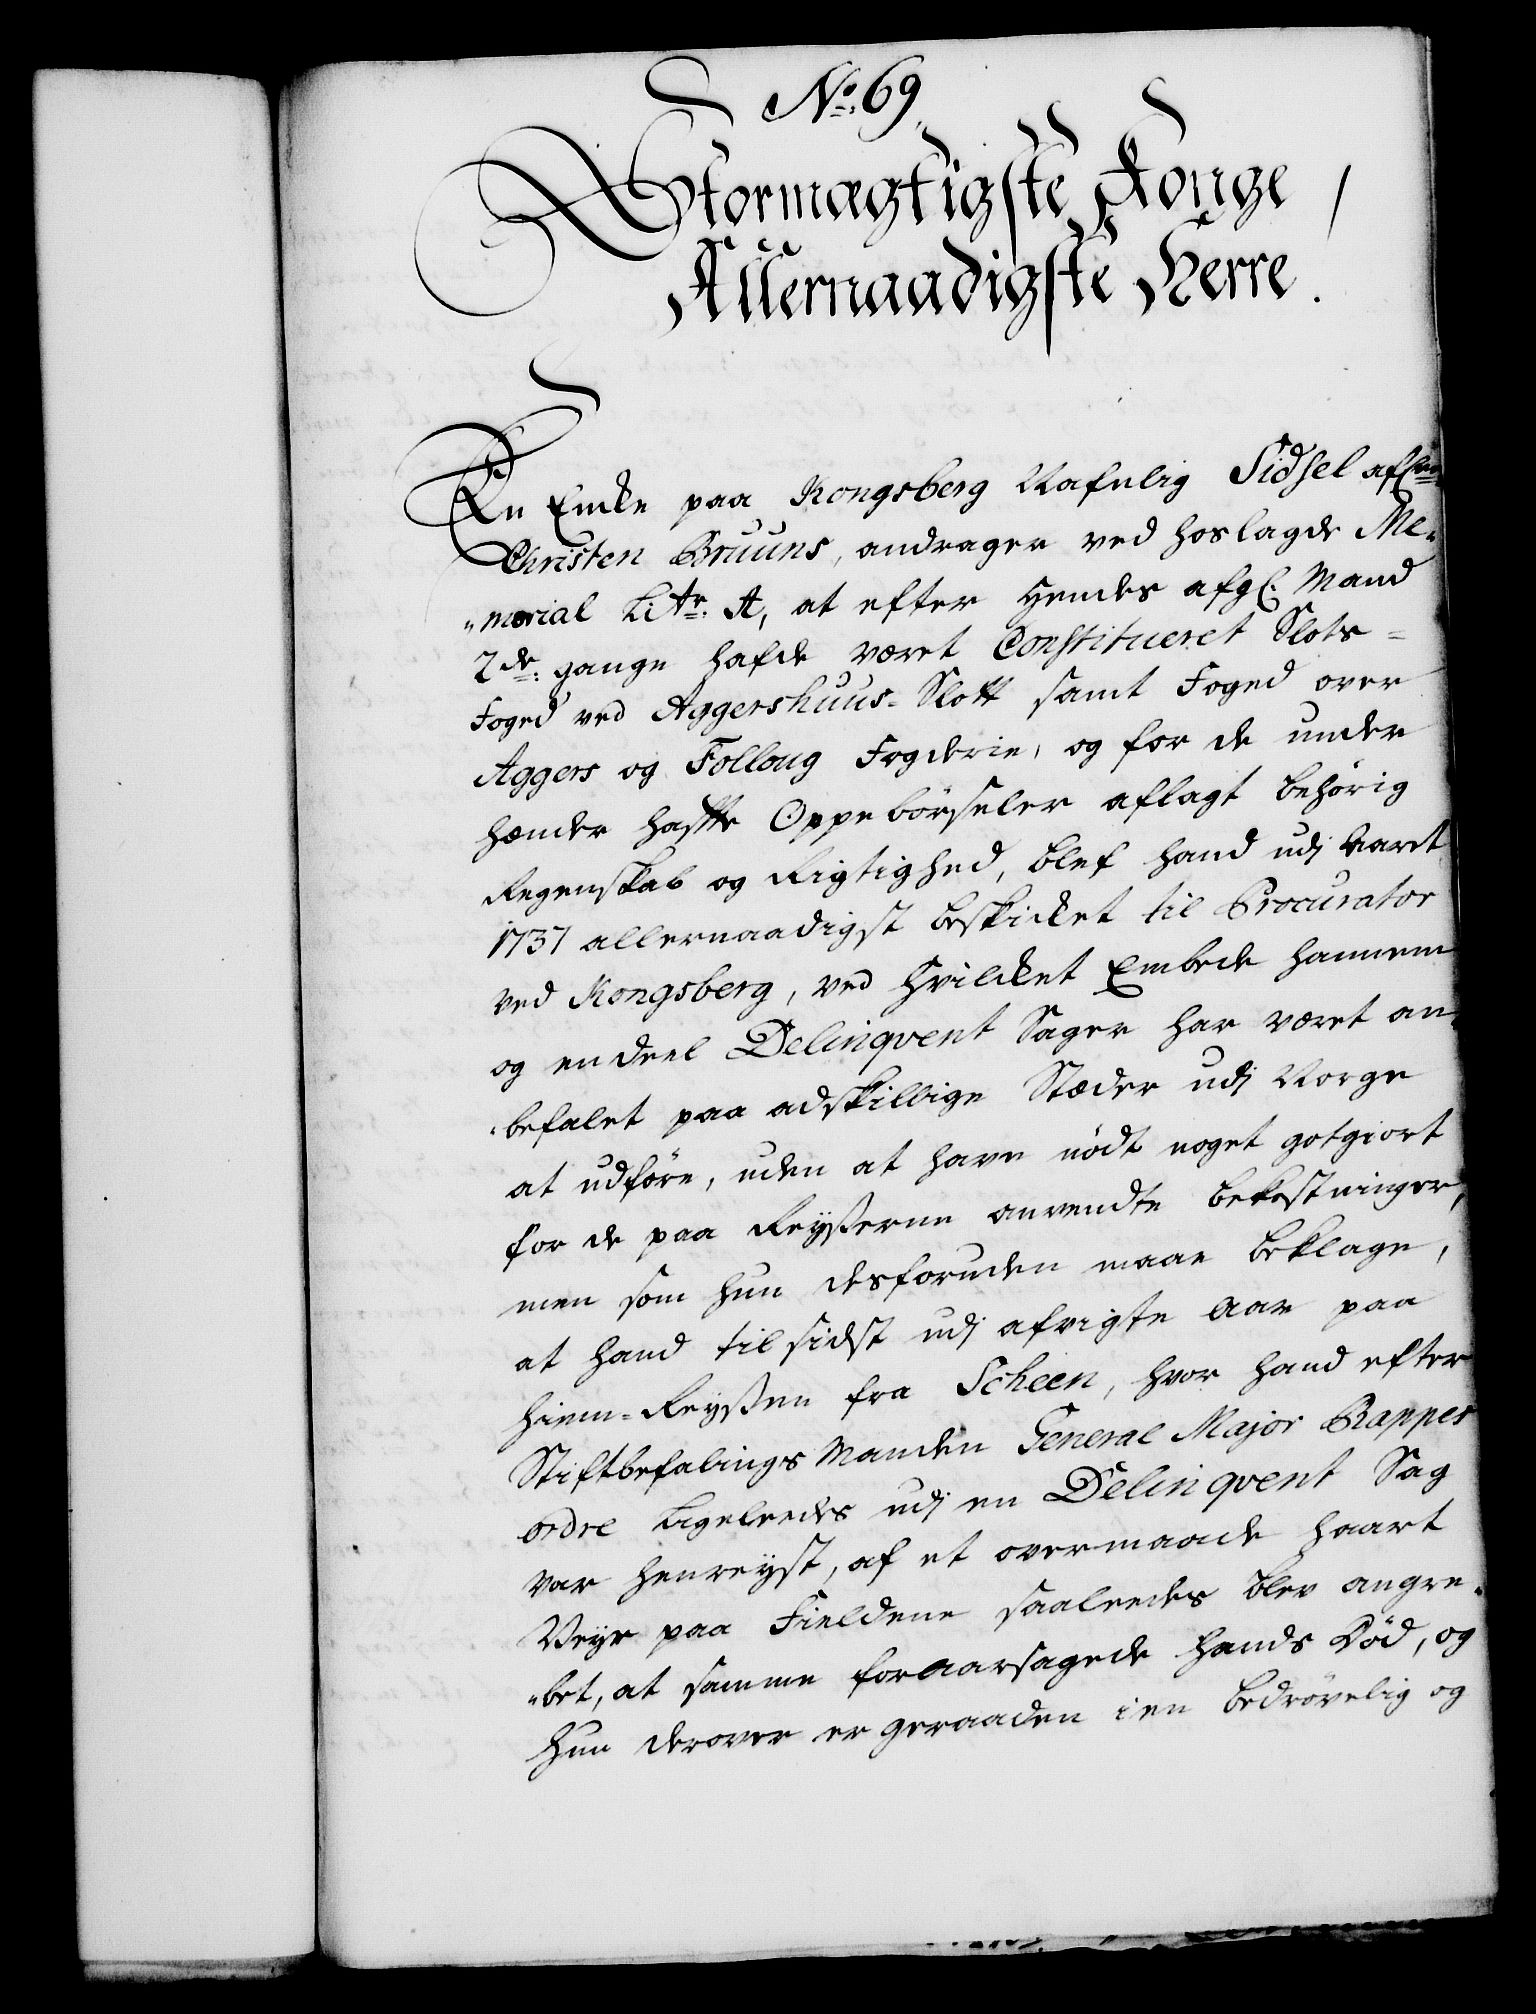 No. 69.
Stormægtigste Konge /
Allernaadigste Herre.
En Encke paa Kongsberg Nafnlig Sidsel
Christen Bruuns, andrager ved hoslagde Me-
„morial Litr. A, at efter Hendes afgl. Mand
2de. gange hafde været Constitueret Slots-
Foged ved Aggershuus-Slott samt Foged over
Aggers og Follong Fogderie, og for de under
hænder hafte Oppebørseler aflagt behørig
Regenskab og Rigtighed, blef hand udj Aaret
1737 allernaadigst beskicket til Procurator
ved Kongsberg, ved hvilcket Embede hannem
og en deel Delinqvent Sager har været an-
„befalet paa adskillige Stæder udj Norge
at udføre, uden at have nødt noget gotgiort
for de paa Reyserne anvendte bekostninger,
men som hun desforuden maae beklage,
at hand til sidst udj afvigte Aar paa
hiem-Reysen fra Scheen, hvor hand efter
Stiftbefalings Manden General Major Rappes
ordre ligeleedes udj en Delinqvent Sag
var henreyst, af et overmaade haart
Veyr paa Fieldene saaleedes blev angre-
„bet, at samme foraarsagede hands Død, og
hun derover er geraaden i en bedrøvelig og